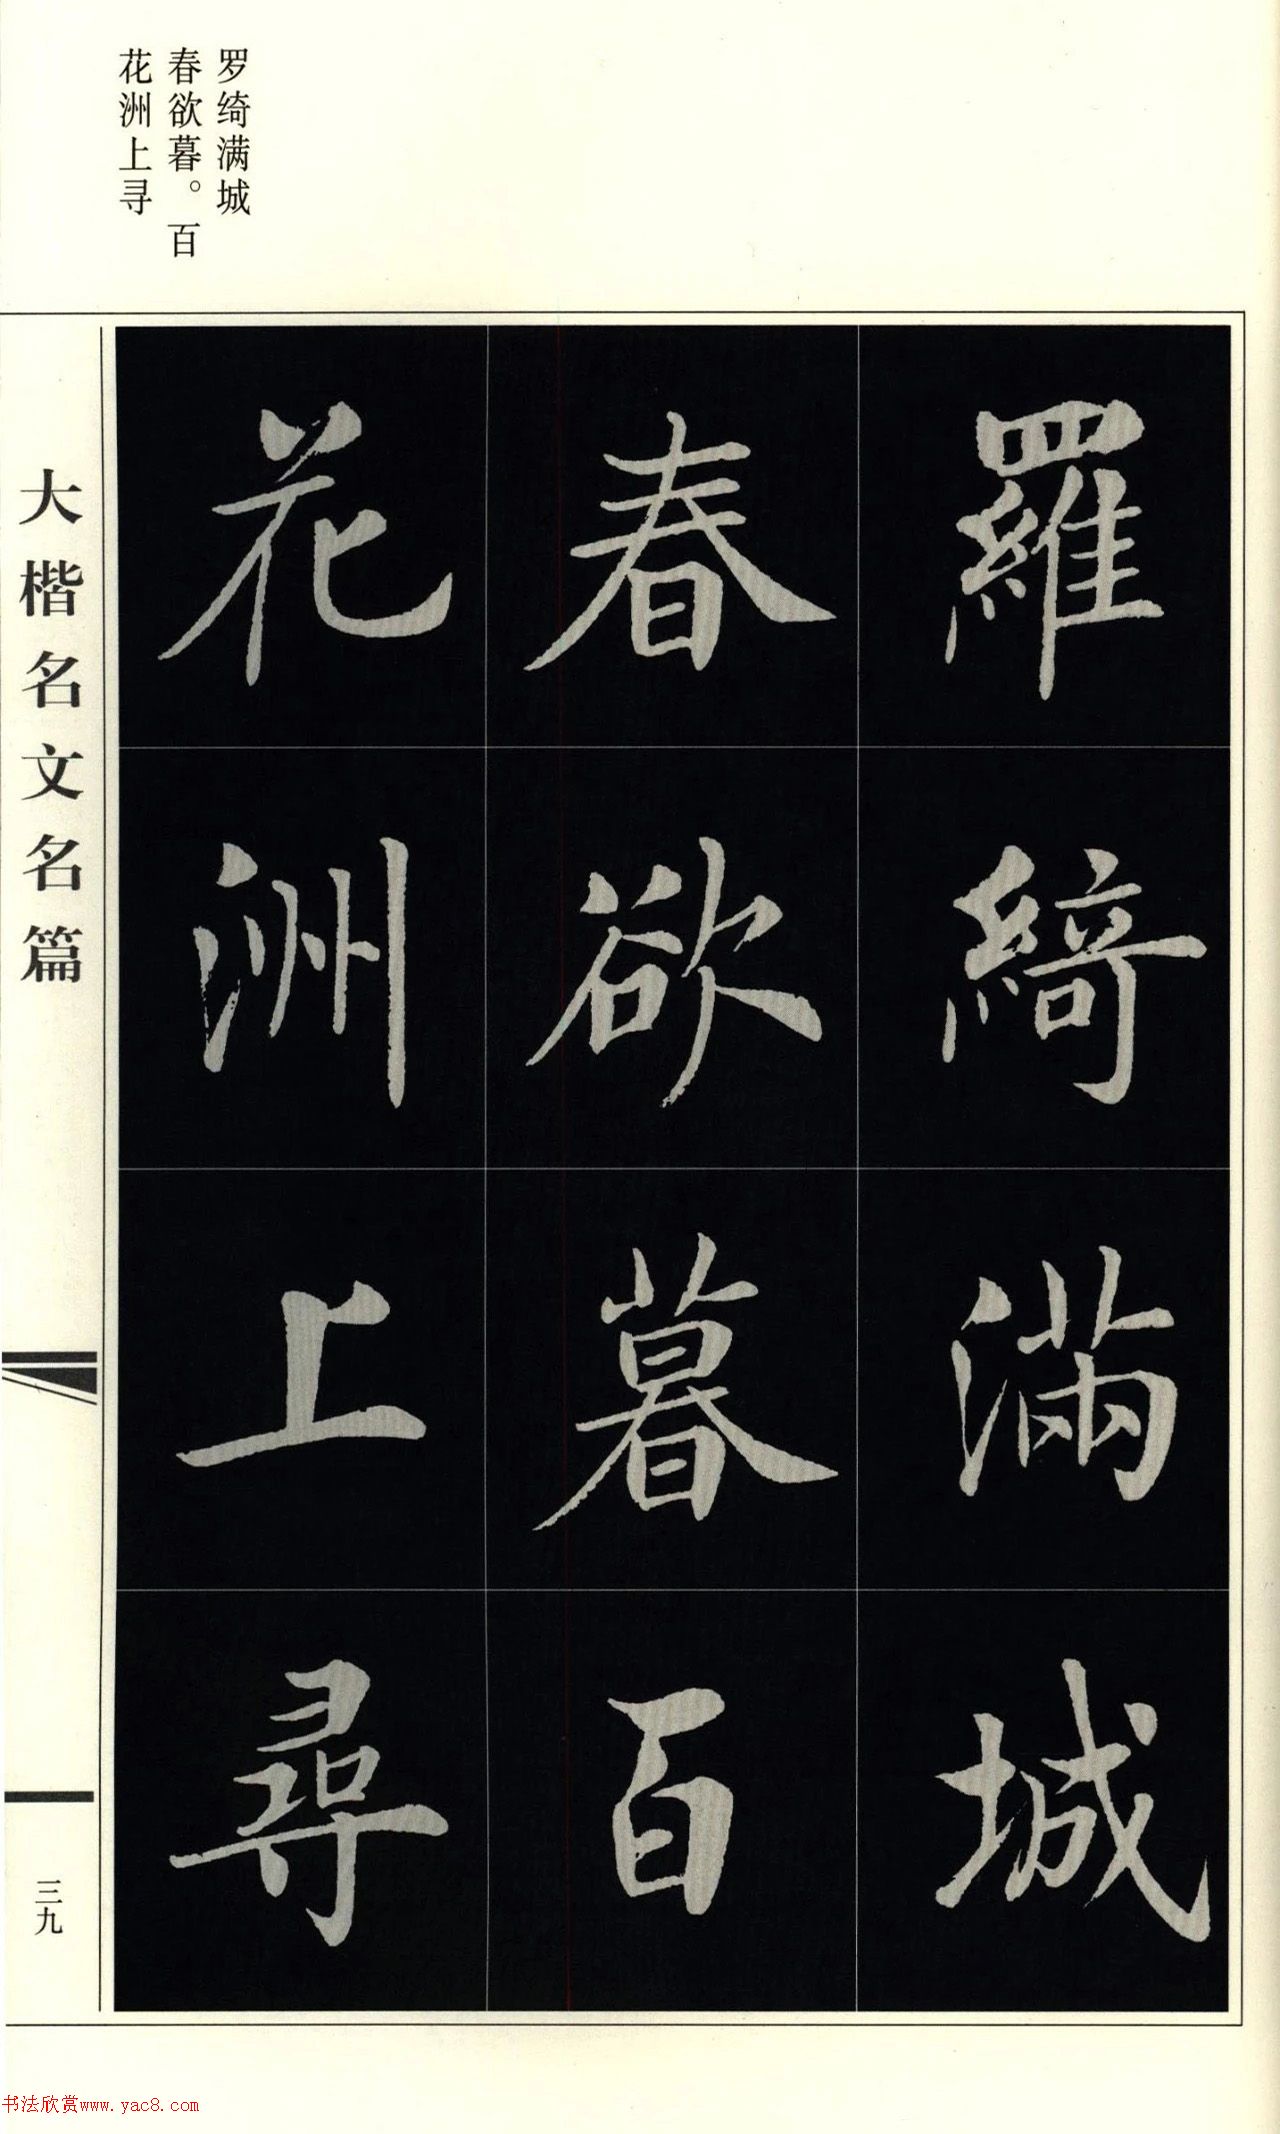 罗绮满城
春欲暮。百
花洲上寻
羅綺滿城
春欲暮百
花洲上尋
大楷名文名篇
三九
书法欣赏www.yac8.com